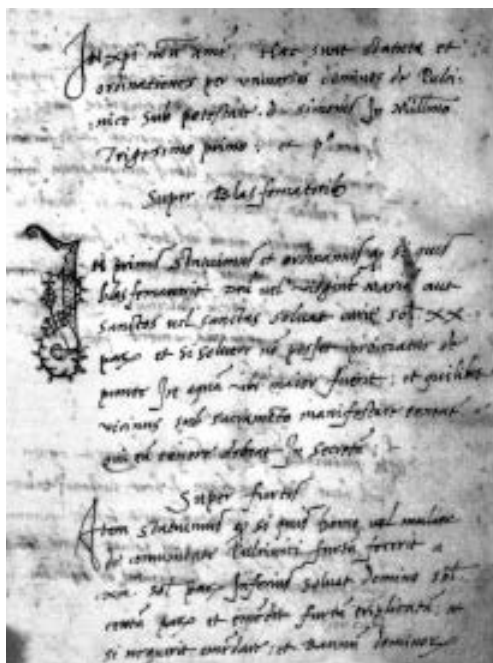 In xpi nōīe amē. Hec sunt statuta et
ordinationes per universos homines de Pulri-
nico sub potestate. d. simonis In Millmo
Trigesimo primo; et pº
Super Blasfematorib
In primis statuimus et ordinamus q si quis
blasfemaverit vel virginē mariā aut
sanctos vel sanctas solvat sol XX.
par et si solvere nō posset proiciatur de
ponte In aquā ubi maior fuerit; et quilibet
vicinus sub sacramēto manifestare
qui eū tenere debeat In secretū;
Super furtis
Item statuimus q si quis homo vel mulier
de comunitate Pulrinici furtū fecerit a
sol. par Inferius solvat domino sol.
centū par et emēdet furtū triplicatū; et
si nequerit emēdare; et bannū domino